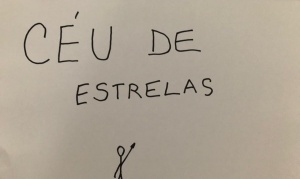 CÉU DE
ESTRELAS